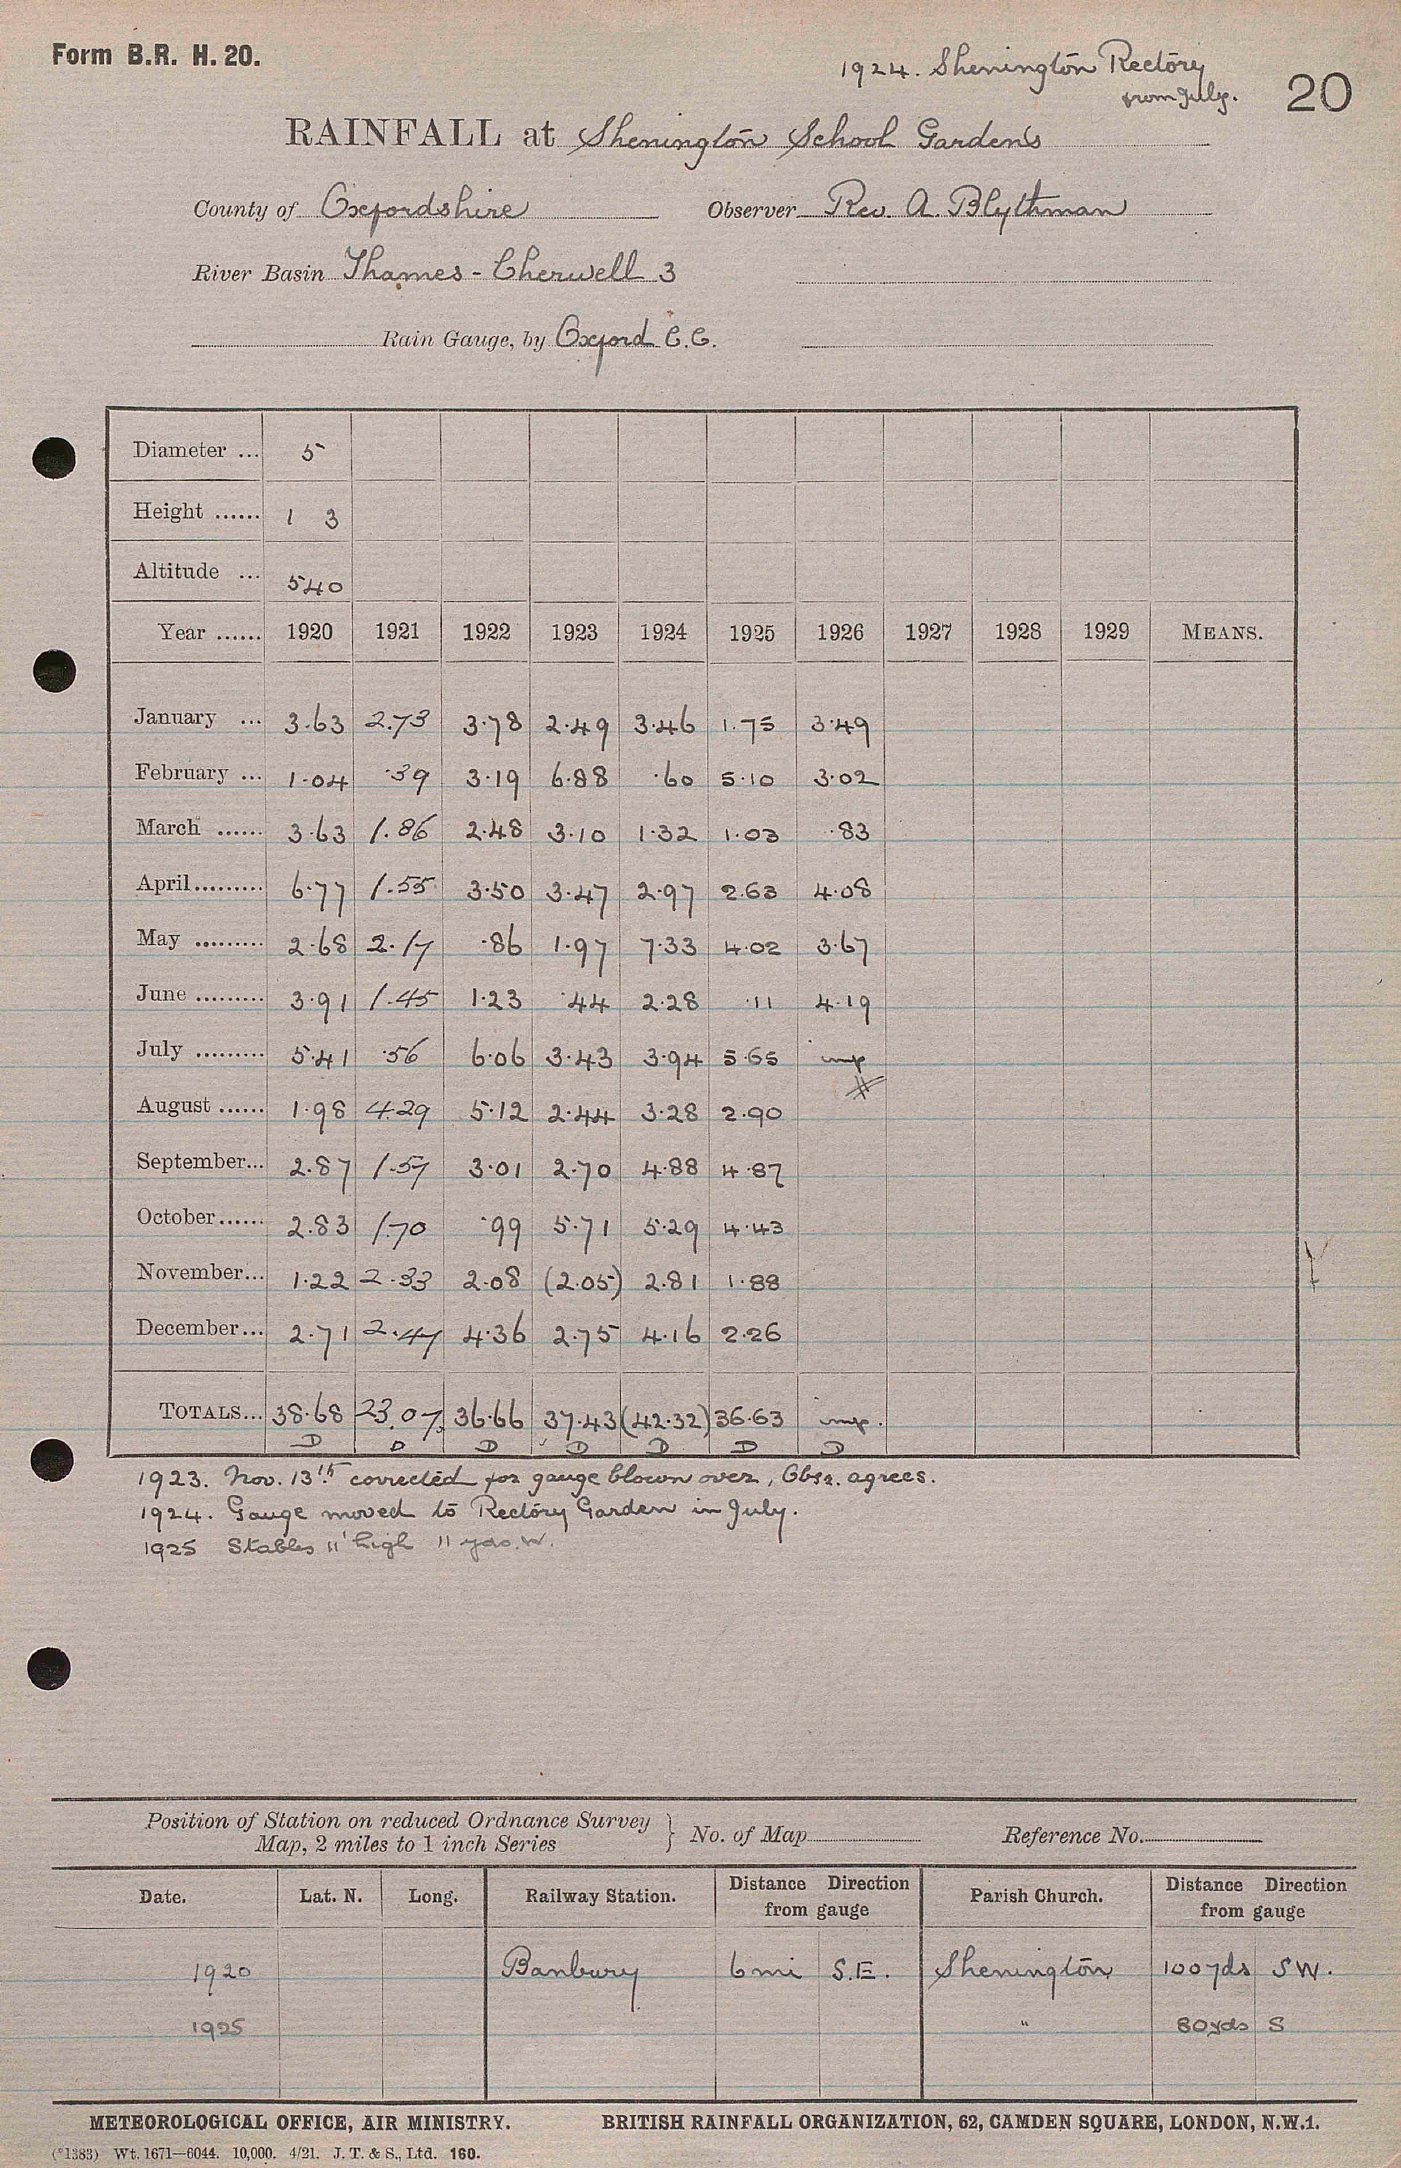 Form B.R. H. 20.
1924. Shenington Rectory
from July.
20
RAINFALL at Shenington School Gardens
County of Oxfordshire Observer Rev. A. Blythman
River Basin Thames - Cherwell 3
Rain Gauge, by Oxford C.C.
Diameter ... 5
Height ...... 1 3
Altitude ... 540
Year ...... 1920 1921 1922 1923 1924 1925 1926 1927 1928 1929 MEANS.
January ... 3.63 2.73 3.78 2.49 3.46 1.75 3.49
February ... 1.04 .39 3.19 6.88 .60 5.10 3.02
March ...... 3.63 1.86 2.48 3.10 1.32 1.03 .83
April ......... 6.77 1.55 3.50 3.47 2.97 2.63 4.08
May ......... 2.68 2.17 .86 1.97 7.33 4.02 3.67
June ......... 3.91 1.45 1.23 .44 2.28 .11 4.19
July ......... 5.41 .56 6.06 3.43 3.94 5.65 imp
August ...... 1.98 4.29 5.12 2.44 3.28 2.90
September... 2.87 1.57 3.01 2.70 4.88 4.87
October ...... 2.83 1.70 .99 5.71 5.29 4.43
November... 1.22 2.33 2.08 (2.05) 2.81 1.88
December... 2.71 2.47 4.36 2.75 4.16 2.26
TOTALS... 38.68 23.07 36.66 37.43 (42.32) 36.63 imp.
D D D D D D D
1923. Nov. 13th corrected for gauge blown over, Obsr. agrees.
1924. Gauge moved to Rectory Garden in July.
1925 Stables 11' high 11 yds. W.
Position of Station on reduced Ordnance Survey
Map, 2 miles to 1 inch Series } No. of Map Reference No.
Date. Lat. N. Long. Railway Station. Distance Direction from gauge Parish Church. Distance Direction from gauge
1920 Banbury 6 mi S.E. Shenington 100 yds SW.
1925 " 80 yds S
METEOROLOGICAL OFFICE, AIR MINISTRY. BRITISH RAINFALL ORGANIZATION, 62, CAMDEN SQUARE, LONDON, N.W.1.
(*1383) Wt. 1671—6044. 10,000. 4/21. J. T. & S., Ltd. 160.